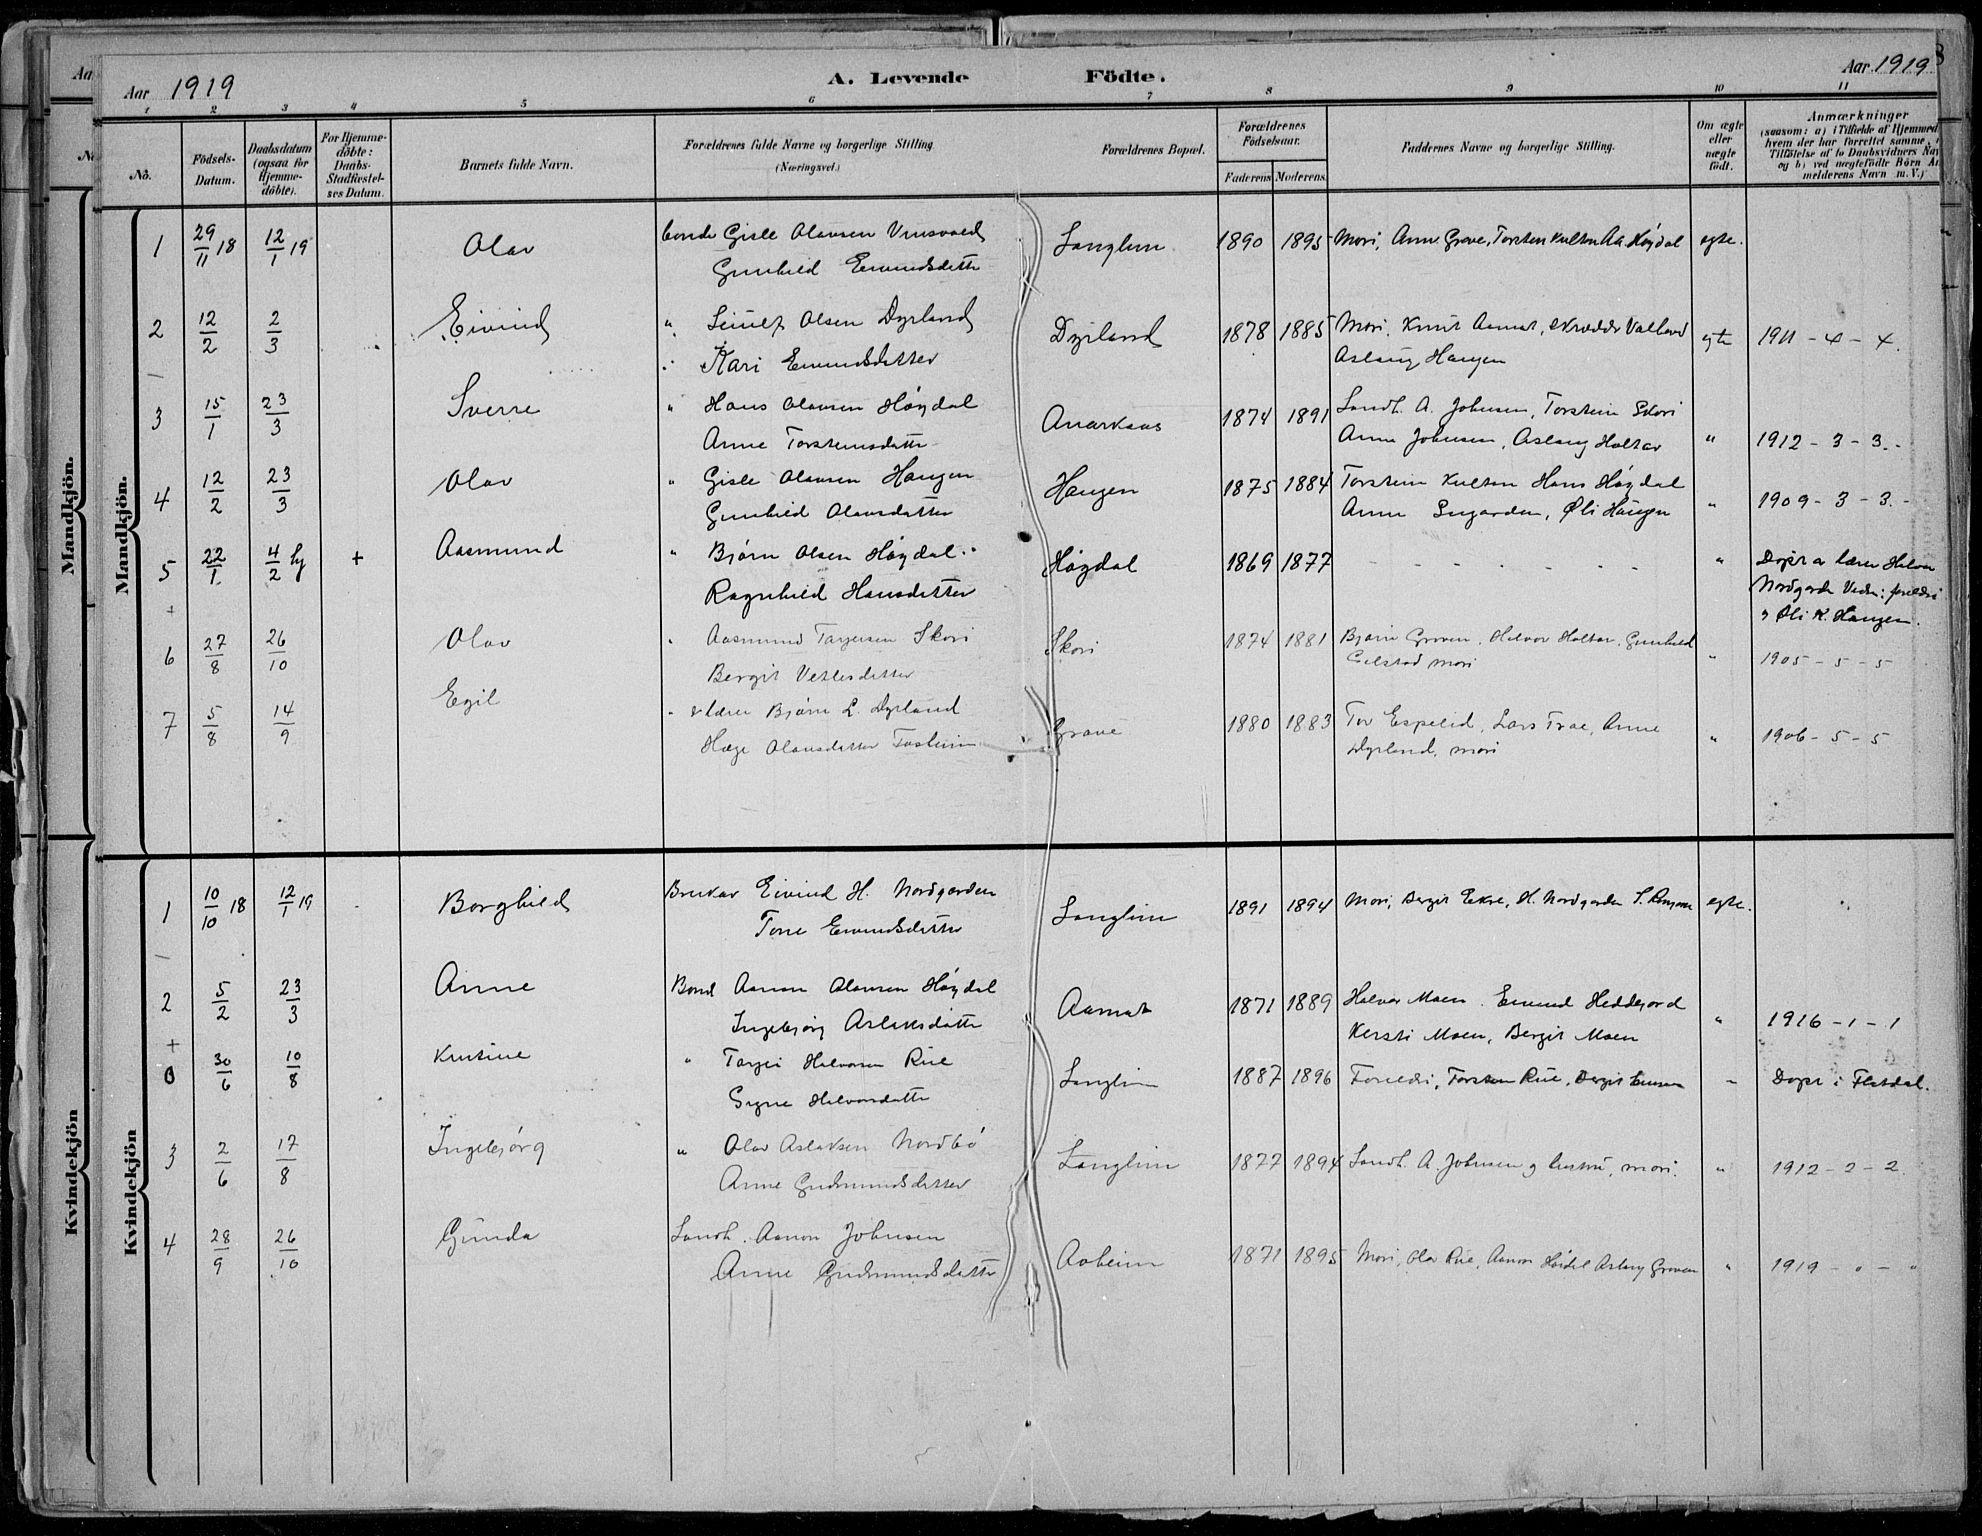 Aar 1919
A. Levende Födte.
Aar 1919
1 2 3 4 5 6 7 8 9 10 11
No.
Födsels-Datum.
Daabsdatum (ogsaa for Hjemme-döbte).
For Hjemme-döbte: Daabs-Stadfestel-ses Datum.
Barnets fulde Navn.
Forældrenes fulde Navne og borgerlige Stilling (Næringsvei.)
Forældrenes Bopæl.
Forældrenes Födselsaar.
Faderens Moderens.
Faddernes Navne og borgerlige Stilling.
Om ægte eller uægte födt.
Anmærkninger
(saasom: a) i Tilfælde af Hjemmed
hvem der har forrettet samme,
Tilföielse af to Daabsvidners Na
og b) ved uægtefödte Börn A
melderens Navn m. V.)
Mandkjön.
Mandkjön.
1 29/11 18 12/1 19 Olav Gisle Olavsen Langlim 1890 1895 Mori, Anne Grave, Torstein Kultan Aa. Høydal egte.
Gunhild Eivindsdatter
2 12/2 2/3 Eivind " Olsen Dyrland Dyrland 1878 1885 Mori, Knut Aamot, egte 1911 - 4 - 4.
Kari Eivindsdatter Aslaug Haugen
3 15/1 23/3 Sverre " Hans Olavsen Høydal 1874 1891 Landh. A. Johnsen, Torstein Skori
Anne Torsteinsdatter Anne Johnsen, Aslaug Holtar " 1912 - 3 - 3.-
4 12/2 23/3 Olav " Gisle Olavsen Haugen Haugen 1875 1884 Torstein Kultan Hans Høydal
Gunhild Olavsdatter Anne Øli Haugen " 1909 - 3 - 3.-
5 22/1 4/2 hj + Aasmund " Bjørn Olsen Høydal Høydal 1869 1877 - - - - - - " Døpt a lærer Halvor
Ragnhild Hansdatter Nordgarden Vidn: foreldri
+ og Øli K. Haugen.
6 27/8 26/10 Olav " Aasmund Targeisen Skori Skori 1874 1881 Bjørn Groven, Halvor Holtar, Gunhild
Bergit Vetlesdatter mori " 1905 - 5 - 5
7 5/8 14/9 Egil - lærer Bjørn L. Dyrland Grave 1880 1883 Tor Espelid, Lars Trae, Anne
Hæge Olavsdatter Dyrland, mori " 1906 - 5 - 5
Kvindekjön
Kvindekjön
1 10/10 18 12/1 19 Borghild Brukar Eivind H. Nordgarden Langlim 1891 1894 Mori, Bergit Ekre, H. Nordgarden egte.
Tone Eivindsdatter
2 5/2 23/3 Anne Bond Aanon Olavsen Høydal Aamot 1871 1889 Halvor Moen, Eivind Heddejord
Ingebjørg Aslaksdatter Kersti Moen, Bergit Moen " 1916 - 1 - 1
+
0 30/6 10/8 Kristine " Targei Halvorsen Rue Langlim 1887 1896 Foreldri, Torstein Rue, Bergit " Døpt i Flatdal.
Signe Halvorsdatter
3 2/6 17/8 Ingebjørg " Olav Aslaksen Nordbø Langlim 1877 1894 Landh. A. Johnsen og hustru, mori. " 1912 - 2 - 2
Anne Gudmundsdatter
4 28/9 26/10 Gunda Landh. Aanon Johnsen
Anne Gudmundsdatter Aaheim 1871 1895 Mori, Olav Rue, Aanon Høidal Aslaug Groven " 1919 - " - "